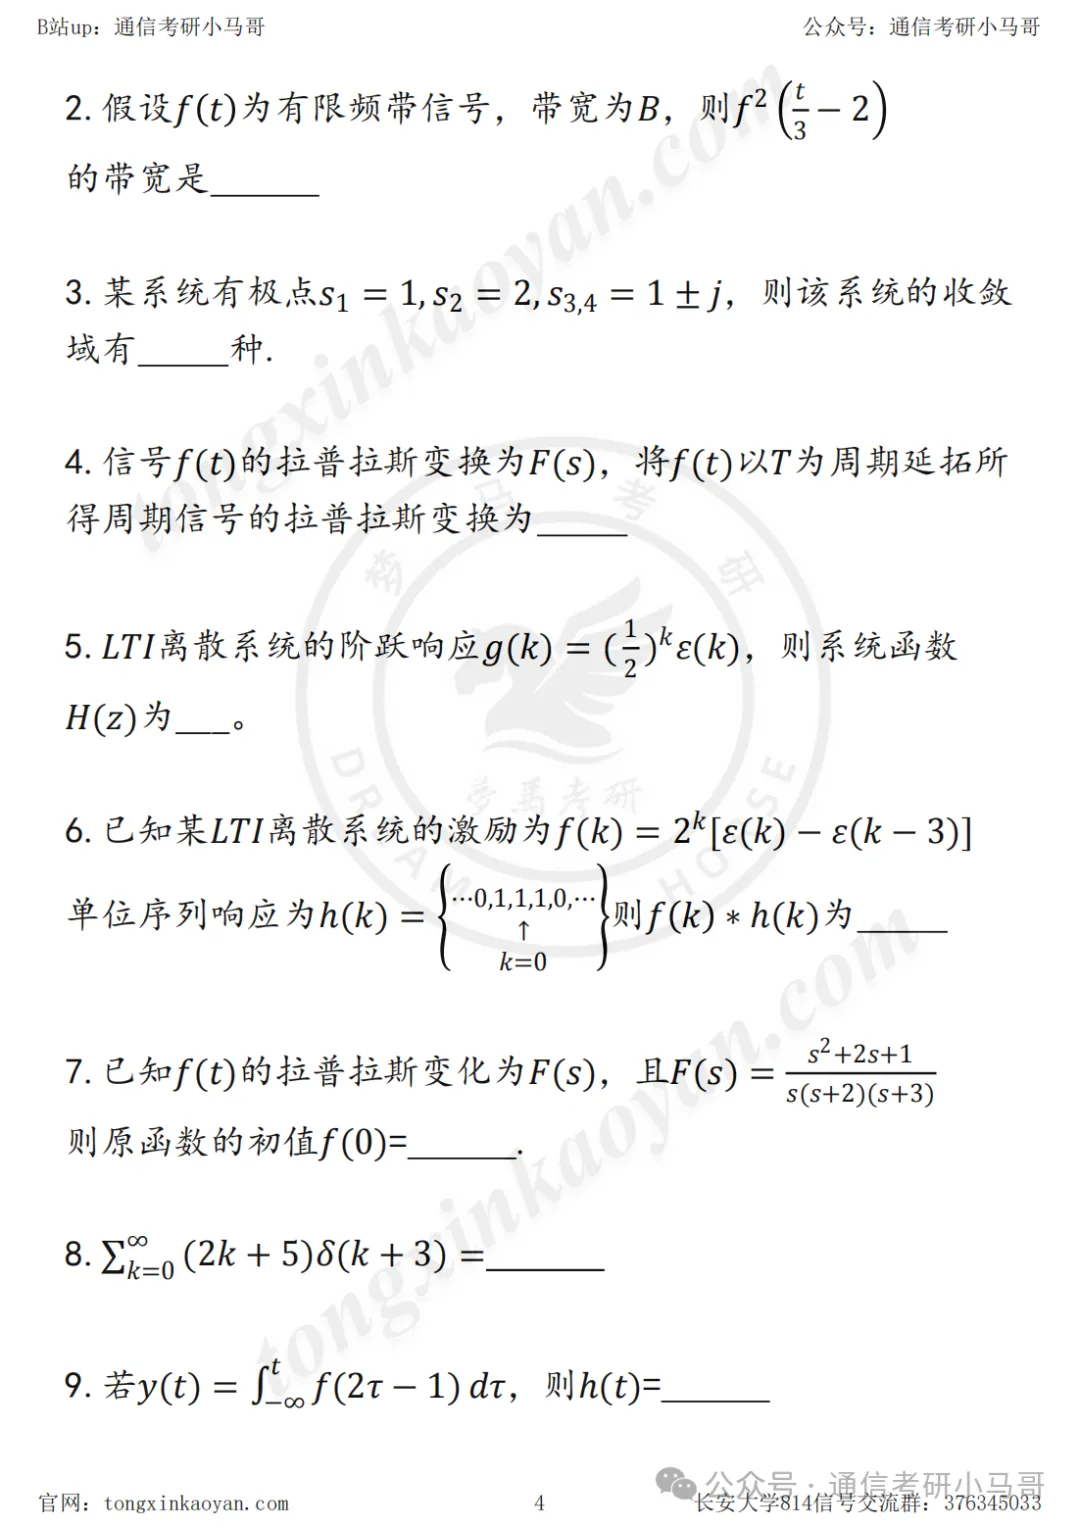 B站up：通信考研小马哥
公众号：通信考研小马哥
2. 假设f(t)为有限频带信号，带宽为B，则f²(t/3−2)
的带宽是______
3. 某系统有极点s₁ = 1, s₂ = 2, s₃,₄ = 1 ± j，则该系统的收敛
域有_____种.
4. 信号f(t)的拉普拉斯变换为F(s)，将f(t)以T为周期延拓所
得周期信号的拉普拉斯变换为_____
5. LTI离散系统的阶跃响应g(k) = (1/2)ᵏε(k)，则系统函数
H(z)为___。
6. 已知某LTI离散系统的激励为f(k) = 2ᵏ[ε(k) − ε(k − 3)]
单位序列响应为h(k) = {⋯0,1,1,1,0,⋯ ↑ k=0}则f(k) ∗ h(k)为_____
7. 已知f(t)的拉普拉斯变化为F(s)，且F(s) = (s²+2s+1)/(s(s+2)(s+3))
则原函数的初值f(0)=______.
8. ∑_{k=0}^{∞} (2k + 5)δ(k + 3) =______
9. 若y(t) = ∫_{−∞}^{t} f(2τ − 1) dτ，则h(t)=______
tongxinkaoyan.com
梦马考研
梦马考研
DREAM HORSE
tongxinkaoyan.com
公众号 · 通信考研小马哥
官网：tongxinkaoyan.com
4
长安大学814信号交流群：376345033